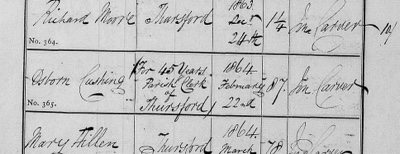 Richard Moore Thursford 1863. Decr 24th 1/4 Jn Carver
No. 364.
Osborn Cushing (For 45 Years Parish Clerk of Thursford) 1864 February 22nd 87. Jn Carver
No. 365.
Mary Thursford 1864 March 78 Jn Carver